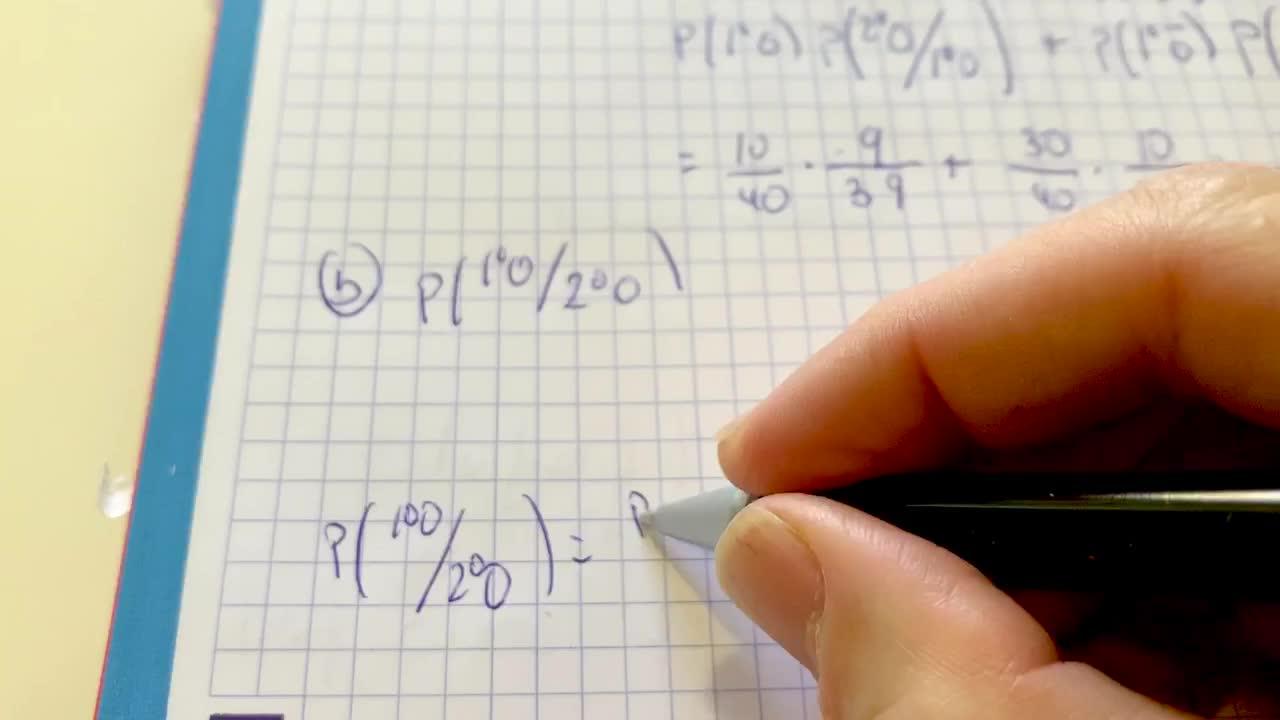 P(1ºO) P(2ºO/1ºO) + P(1ºO̅) P(
= 10/40 · 9/39 + 30/40 · 10
b) P(1ºO/2ºO)
P(1ºO/2ºO) = P